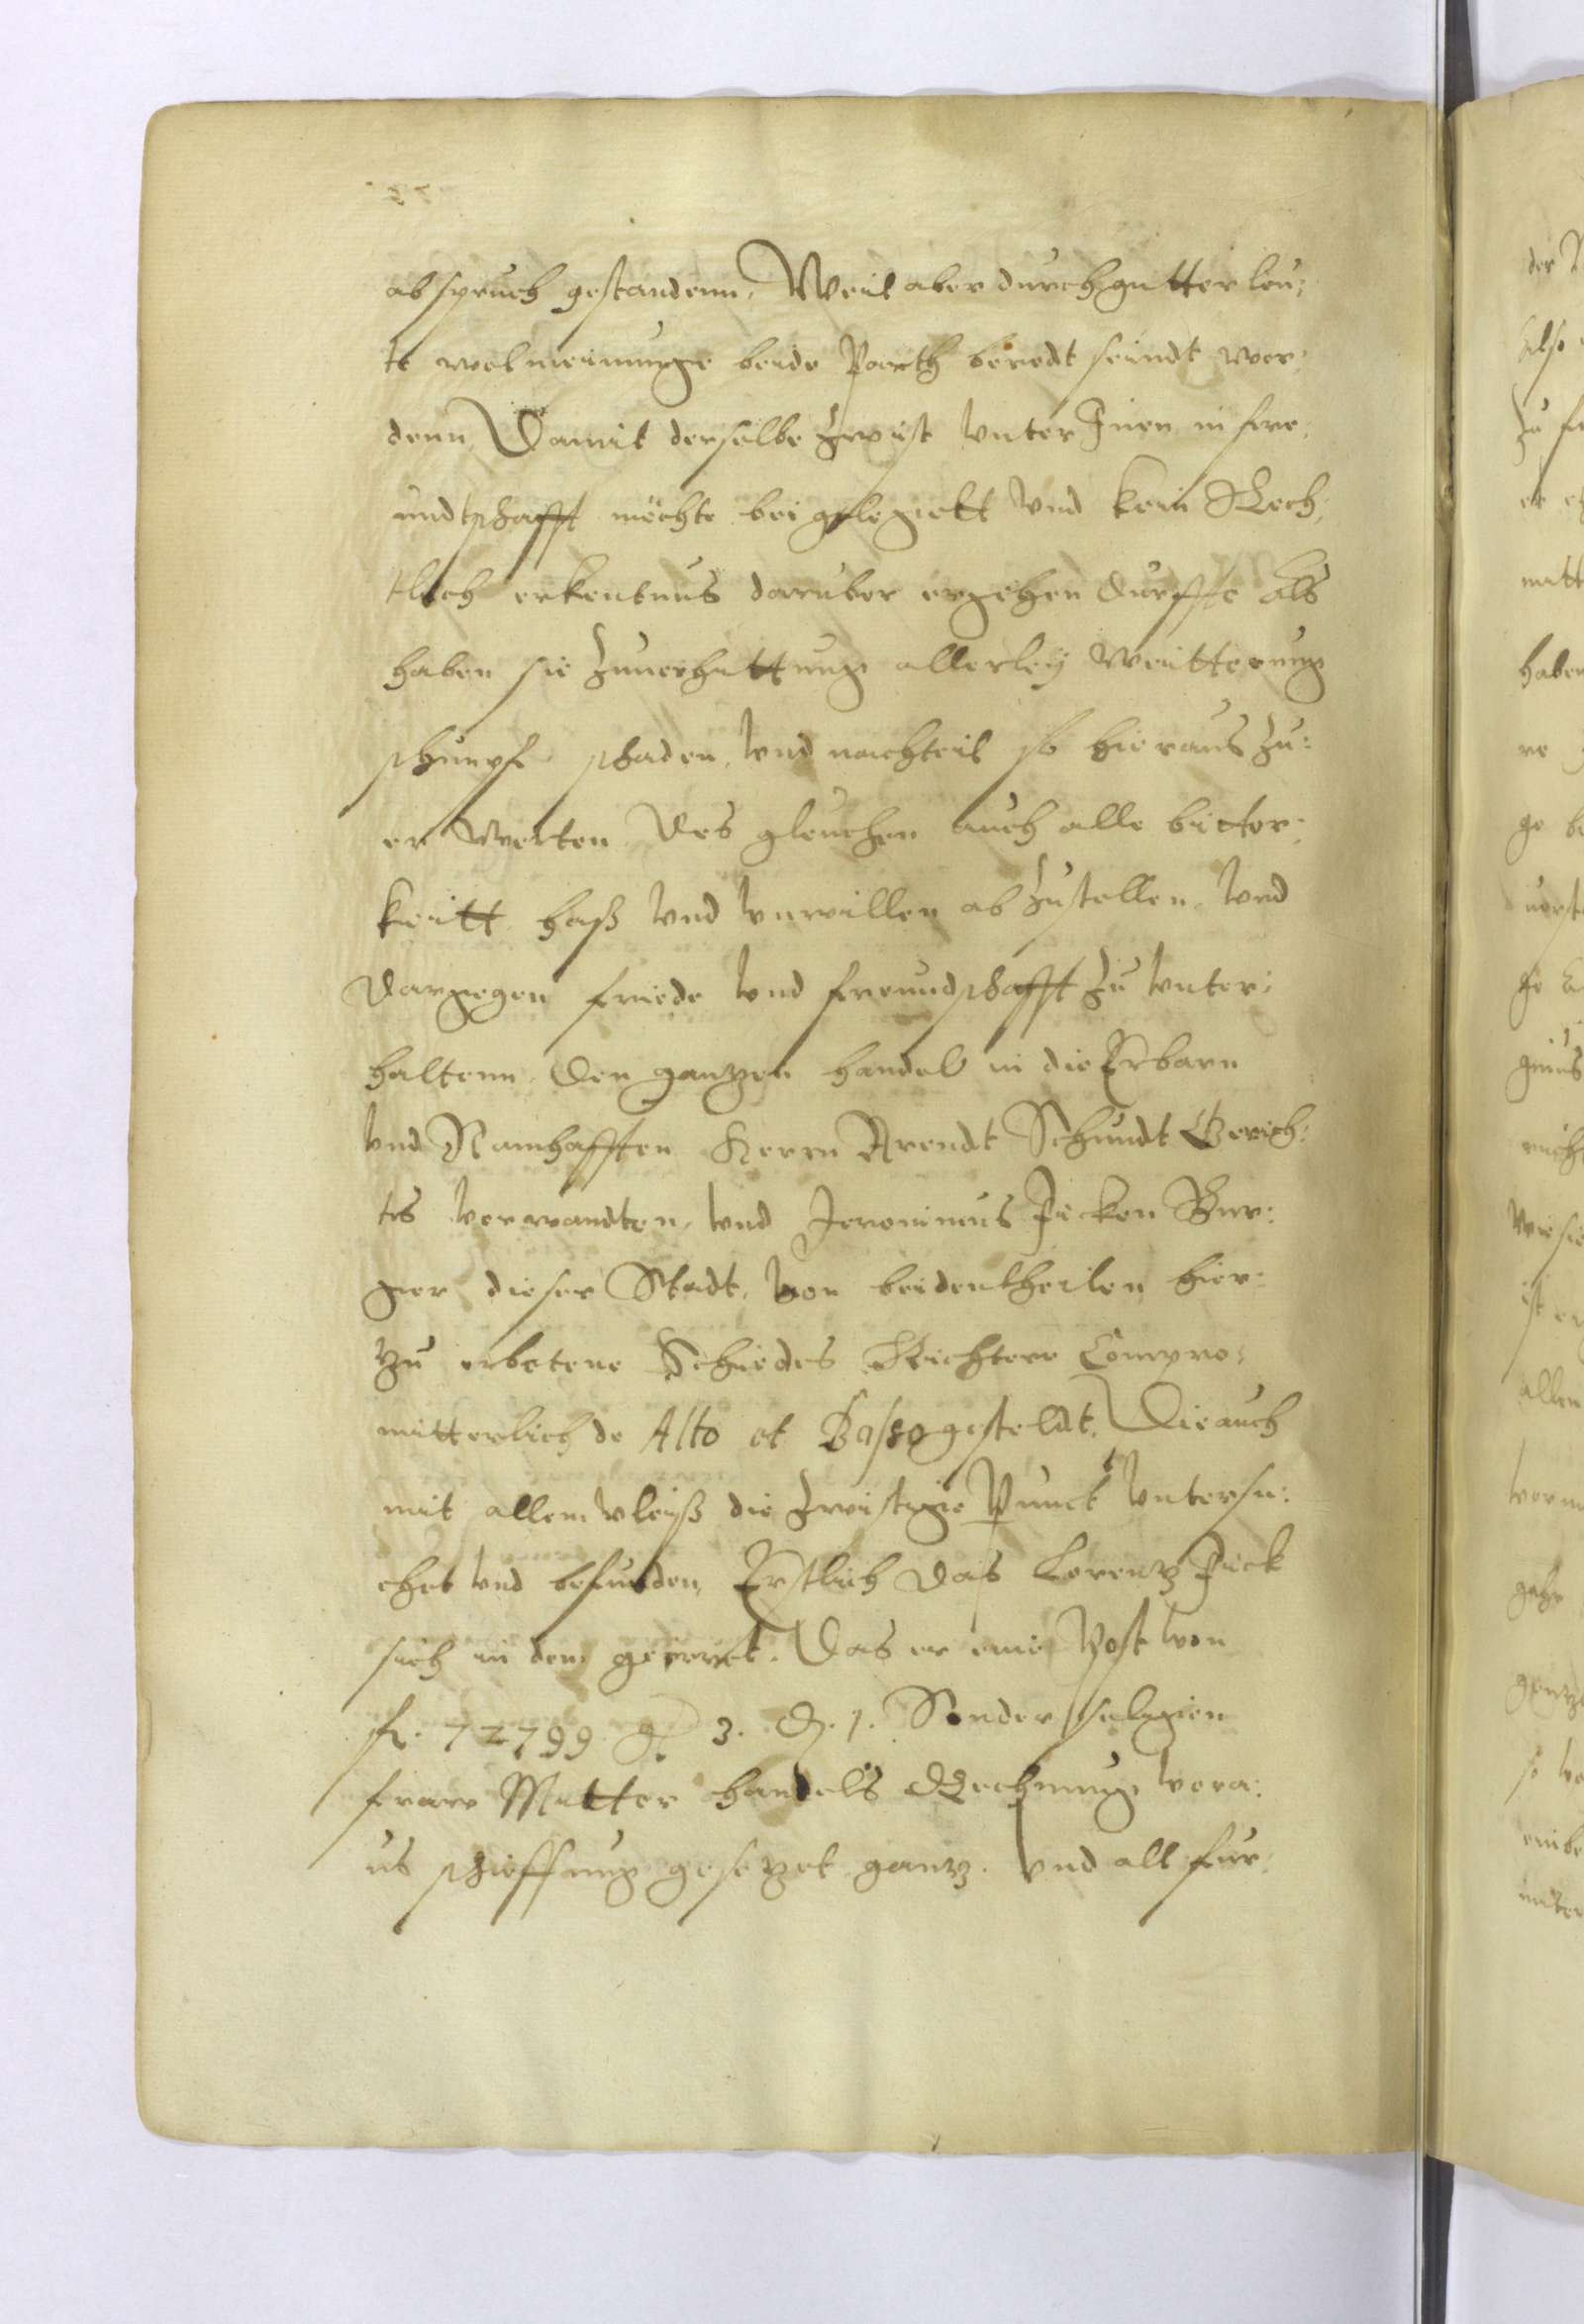 absprŭch gestandenn, Weil aber dŭrch gutter leu¬
te wolmeinunge beide Parth beredt seindt wor¬
denn, Damit derselbe Zwist vnter Inen in fre¬
undtschafft möchte bei gelegett vnd kein Rech¬
tlich erkentnŭs darŭber ergehen dŭrffte Als
haben sie Zuuerhuttung allerleÿ Weitterung
schimpf schaden, vnd nachteil so hieraŭs Zŭ¬
er Warten Des gleichen aŭch alle bitter¬
keitt haß vnd vnwillen ab Zŭstellen vnd
dargegen friede vnd freundschafft Zŭ vnter¬
haltenn, Den gantzen handel in die Erbarn
vnd Namhafften Herrn Arendt Schmidt Gerich¬
ts verwandten, vnd Jeronimŭs Picken Bur¬
ger dieser Stadt, von beidentheilen hier¬
zŭ erbetene Schiedes Richtere Compro¬
mitterlich de Alto et Basso gestellt, Die aŭch
mit allem vleiß die Zwistige Punct vntersu¬
chet vnd befunden, Erstlich das Lorentz Pick
sich in dem geirret. Das er eine Post von
fl. 72799 g 3. d. 1. Sonder seligen
fraw Mutter handels Rechnung vora¬
us schiessung gesetzet gantz. vnd all fur¬